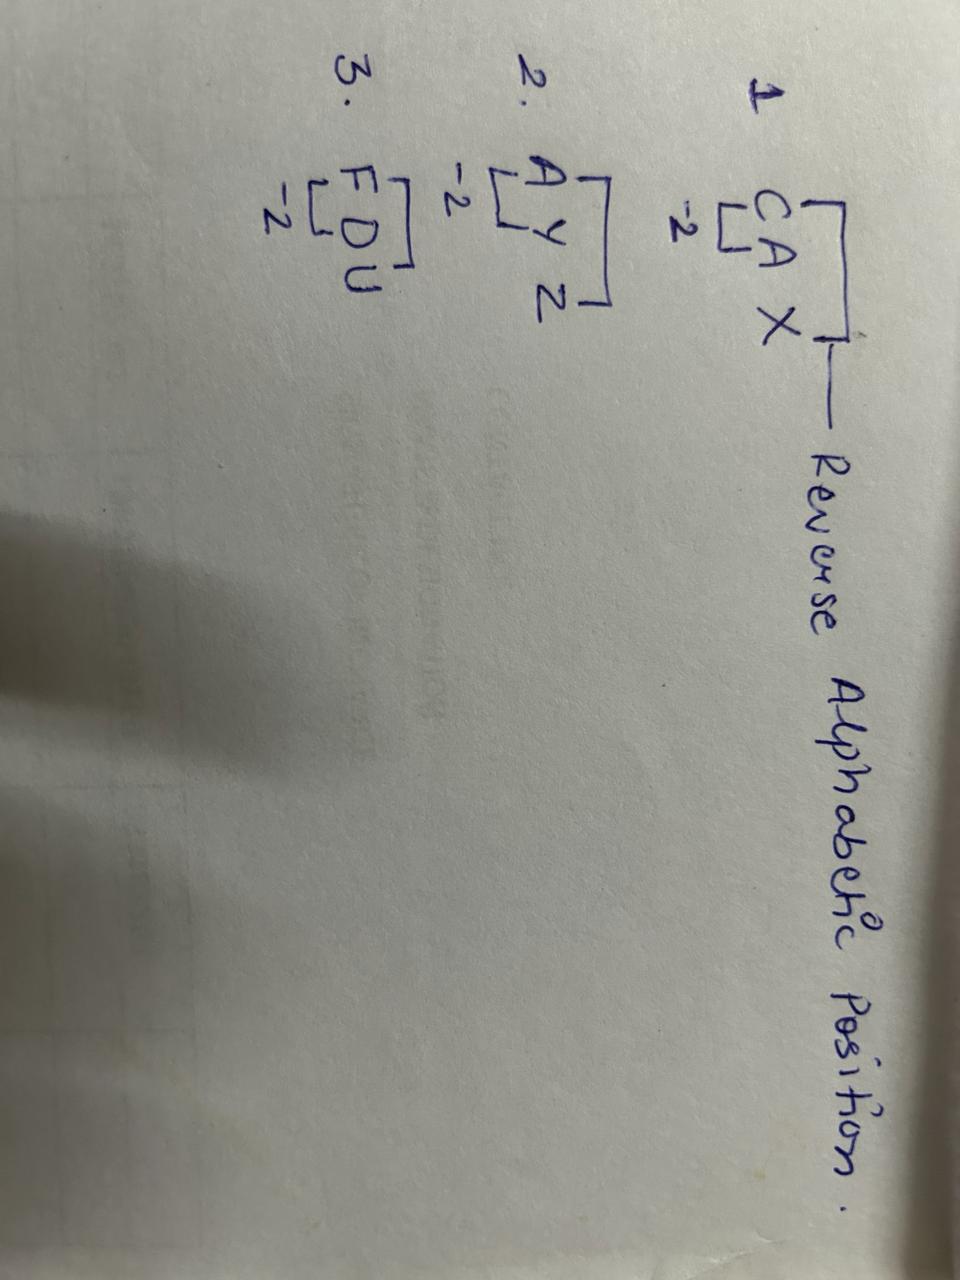 Reverse Alphabetic Position.
1 C A X
-2
2. A Y Z
-2
3. F D U
-2